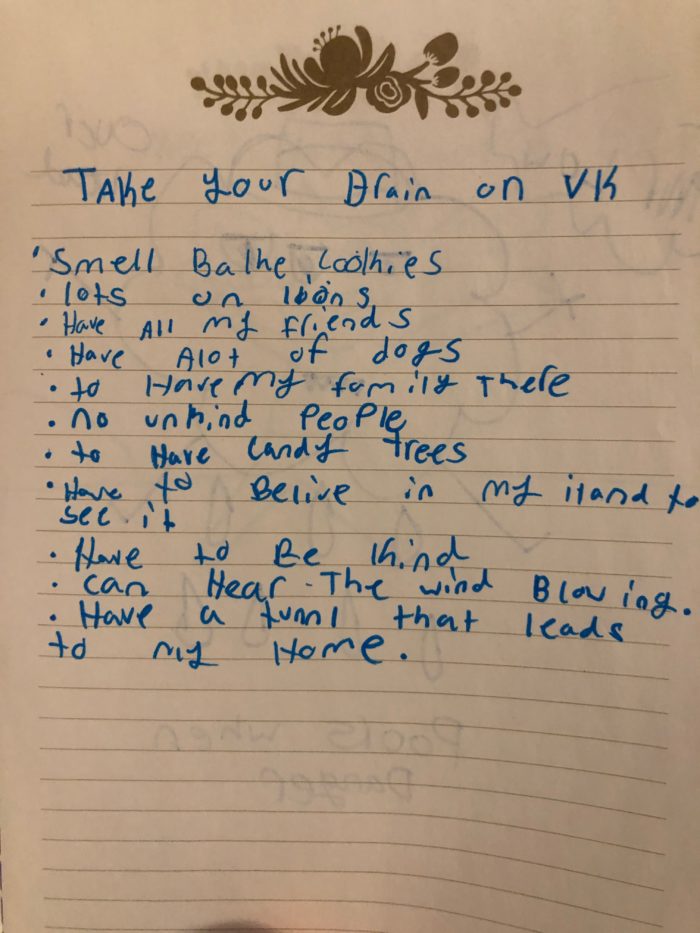 TAKE your Brain on VK
• Smell Bathe Coolhies
• lots on
• Have All my friends
• Have Alot of dogs
• to Have my family There
• no unkind People
• to Have Candy Trees
• Have to Belive in my iland to
see it
• Have to Be Kind
• can Hear The wind Blowing.
• Have a tunnl that leads
to my Home.
Pools when
Danger